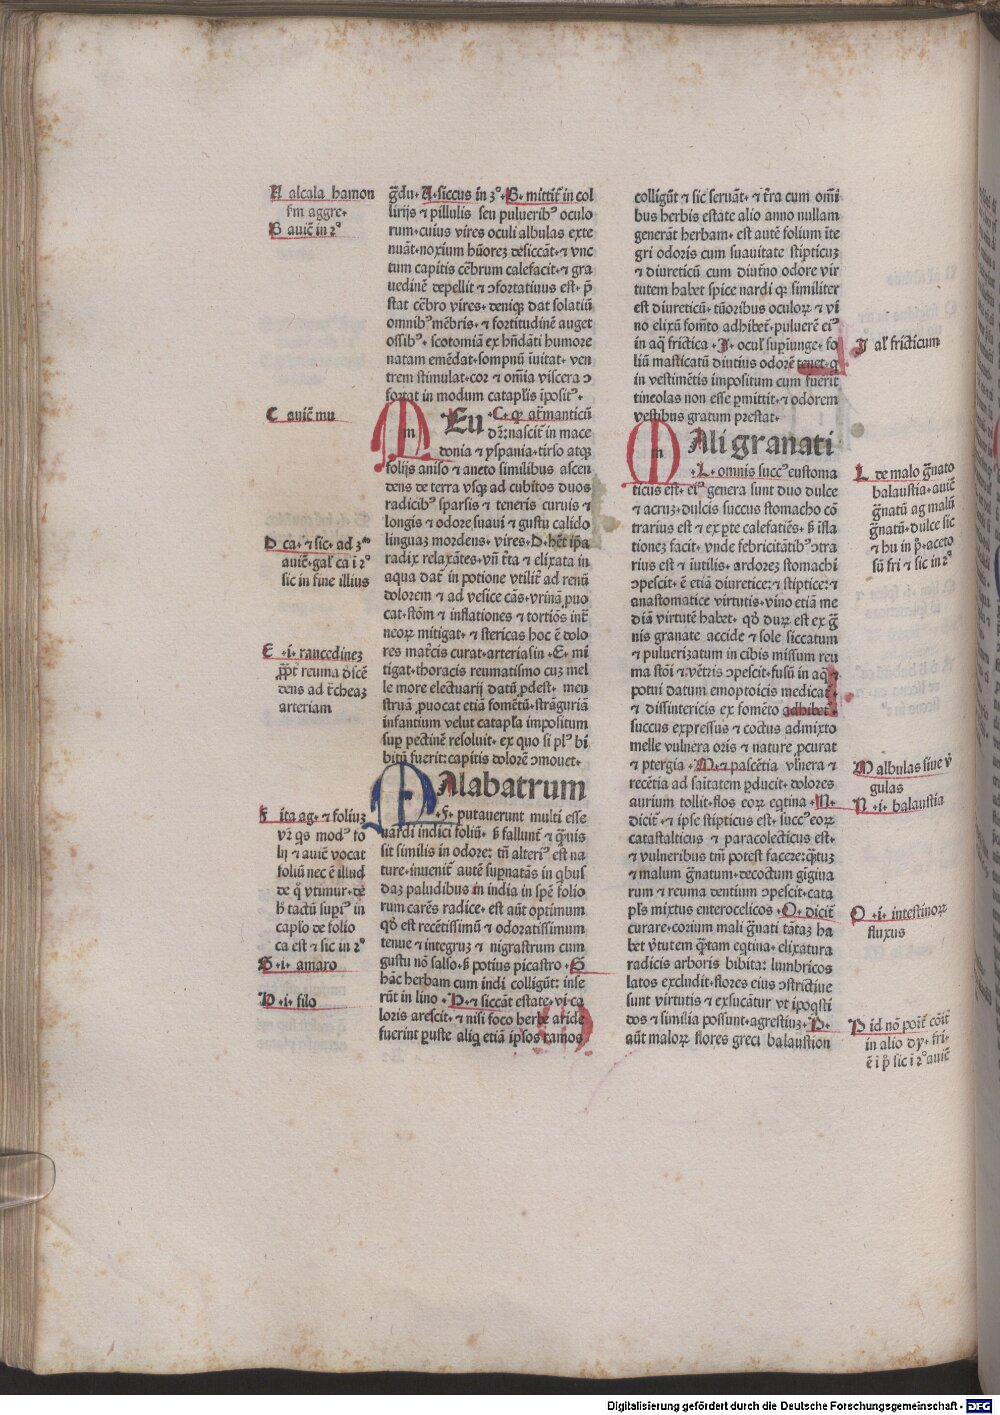 A alcala hamon
fm aggre·
B auic̄ in 2°
C auic̄ mu
D ca· ⁊ sic· ad 3ᵐ
auic̄· gal' ca i 2°
sic in fine illius
E ·i· raucedineʒ
ꝓpt̄ reuma dicē
dens ad tr̄cheaʒ
arteriam
F ita ag· ⁊ foliuʒ
lij ⁊ auic̄ vocat
foliū nec ē illud
de q̄ vtimur·
h̄ tactū supi' in
caplo de folio
ca est ⁊ sic in 2°
G ·i· amaro
H ·i· filo
g̃du· A· siccus in 3°· B· mittit̄ in col
lirijs ⁊ pillulis seu pulueribꝰ oculo
rum· cuius vires oculi albulas exte
nuāt· noxium hūoreʒ desiccāt· ⁊ vnc
tum capitis cēbrum calefacit· ⁊ gra
uedinē depellit ⁊ ɔfortatiuus est· p̄
stat cēbro vires· deniqʒ dat solatiū
omnibꝰ mēbris· ⁊ fortitudinē auget
ossibꝰ· scotomiā ex hn̄dāti humore
natam emēdat· sompnū iuitat· ven
trem stimulat· cor ⁊ om̄ia viscera ɔ
fortat in modum cataplis īposit'·
Meu ·C· qʒ atr̄manticū
dr̄: nascit̄ in mace
donia ⁊ yspania· tirso atqʒ
folijs aniso ⁊ aneto similibus ascen
dens de terra vsqʒ ad cubitos duos
radicibꝰ sparsis ⁊ teneris curuis ⁊
longis ⁊ odore suaui ⁊ gustu calido
linguaʒ mordens· vires· D· hēt ip̄a
radix relaxātes· vn̄ tr̄ta ⁊ elixata in
aqua dat̄ in potione vtilit̄ ad renū
dolorem ⁊ ad vesice cās· vrinā ꝓuo
cat· stōm ⁊ inflationes ⁊ tortiōs int̄
neorʒ mitigat· ⁊ stericas hoc ē dolo
res mat̄cis curat· arteriasin ·E· mi
tigat· thoracis reumatismo cuʒ mel
le more electuarij datū ꝓdest· men
struā ꝓuocat etiā fomētū· strāguriā
infantium velut catapla impositum
suꝑ pectinē resoluit· ex quo si pl' bi
bitū fuerit: capitis dolorē ɔmouet·
Malabatrum
·F· putauerunt multi esse
nardi indici foliū· ß fallunt̄ ⁊ q̄uis
sit similis in odore: tn̄ alteri' est na
ture· inuenit̄ autē suꝑnatās in qbus
daʒ paludibus in india in spē folio
rum carēs radice· est aūt optimum
qḋ est recētissimū ⁊ odoratissimum
tenue ⁊ integruʒ ⁊ nigrastrum cum
gustu nō salso· ß potius picastro ·G
hāc herbam cum indi colligūt: inse
rūt in lino ·H· ⁊ siccāt estate· vi ca
loris arescit· ⁊ nisi foco herbe aride
fuerint ꝑuste aliq etiā ipsos ramos
colligūt ⁊ sic seruāt· ⁊ tr̄ra cum om̄i
bus herbis estate alio anno nullam
generāt herbam· est autē folium īte
gri odoris cum suauitate stipticuʒ
⁊ diureticū cum diut̄no odore vir
tutem habet spice nardi qʒ similiter
est diureticū· tūoribus oculorʒ ⁊ vi
no elixū fom̄to adhibet̄· puluerē ei'
in aq̄ frictica ·I· ocul' suꝑiunge· fo
liū masticatū diutius odorē tenet· q̄
in vestimētis impositum cum fuerit
tineolas non esse ꝑmittit· ⁊ odorem
vestibus gratum prestat·
Mali granati
·L· omnis succ' eustoma
ticus est· ei' genera sunt duo dulce
⁊ acruʒ· dulcis succus stomacho cō
trarius est ⁊ ex ꝑte calefatiēs· ß īfla
tioneʒ facit· vnde febricitātibꝰ ɔtra
rius est ⁊ īutilis· ardoreʒ stomachi
ɔpescit· ē etiā diuretice: ⁊ stiptice: ⁊
anastomatice virtutis· vino etiā me
diā virtutē habet· qḋ durʒ est ex g̃
nis granate accide ⁊ sole siccatum
⁊ puluerizatum in cibis missum reu
ma stōi ⁊ vētris ɔpescit· fusū in aq̄ ⁊
potui datum emoptoicis medicat̄
⁊ dissintericis ex fomēto adhibet̄·
succus expressus ⁊ coctus admixto
melle vulnera oris ⁊ nature ꝓcurat
⁊ ptergia ·M· ⁊ pascētia vlnera ⁊
recētia ad saītatem ꝑducit· dolores
aurium tollit· flos eorʒ egtina ·N·
dicit̄ ⁊ ipse stipticus est· succ' eorʒ
catastalticus ⁊ paracolecticus est·
⁊ vulneribus tm̄ potest facere: q̄tuʒ
⁊ malum g̃natum· decoctum gigiua
rum ⁊ reuma dentium ɔpescit· cata
pl's mixtus enterocelicos ·O· dicit̄
curare· corium mali g̃nati tātaʒ ha
bet v̄tutem q̄tam egtina· elixatura
radicis arboris bibita: lumbricos
latos excludit· flores eius ɔstrictiue
sunt virtutis ⁊ exsucātur vt ipoqsti
dos ⁊ similia possunt· agrestiuʒ ·P·
aūt malorʒ flores greci balaustion
I al' fricticum
L de malo g̃nato
balaustia· auic̄
g̃natū ag malū
g̃natū· dulce sic
⁊ hu in p̄· aceto
sū fri ⁊ sic in 2°
M albulas siue v̄
gulas
N ·i· balaustia
O ·i· intestinorʒ
fluxus
P id nō poit̄ cōit̄
in alio dy· fri·
ē i p̄ sic i 2° auic̄
Digitalisierung gefördert durch die Deutsche Forschungsgemeinschaft - DFG